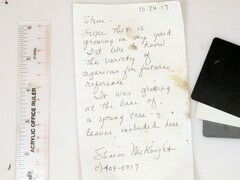 10-24-17
Steve -
Since this is
growing in my yard
I'd like to know
the variety of
agaricus for future
reference.
It was growing
at the base of
a young tree -
leaves included here.
Sharon McKnight
ACRYLIC OFFICE RULER